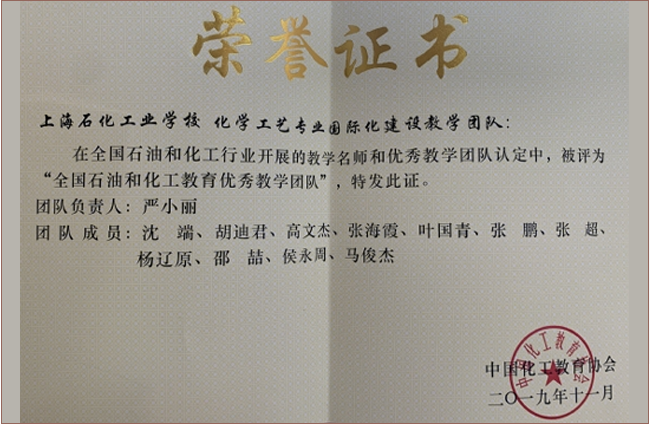 荣誉证书
上海石化工业学校 化学工艺专业国际化建设教学团队：
在全国石油和化工行业开展的教学名师和优秀教学团队认定中，被评为
“全国石油和化工教育优秀教学团队”，特发此证。
团队负责人：严小丽
团队成员：沈 端、胡迪君、高文杰、张海霞、叶国青、张 鹏、张 超、
杨辽原、邵 喆、侯永周、马俊杰
中国化工教育协会
中国化工教育协会
二〇一九年十一月